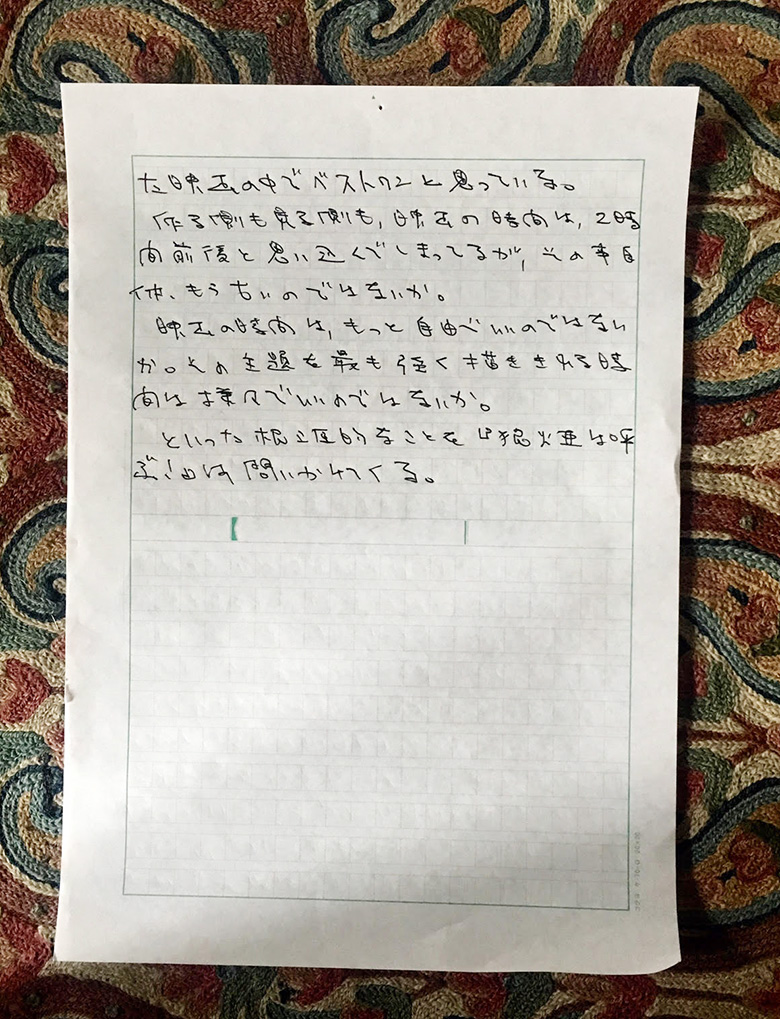 た映画の中でベストワンと思っている。
作る側も見る側も,映画の時間は,2時
間前後と思い込んでしまってるが,その事自
体、もう古いのではないか。
映画の時間は,もっと自由でいいのではない
か。その主題を最も強く描ききれる時
間は様々でいいのではないか。
といった根源的なことを『狼煙は呼
ぶ』は問いかけてくる。